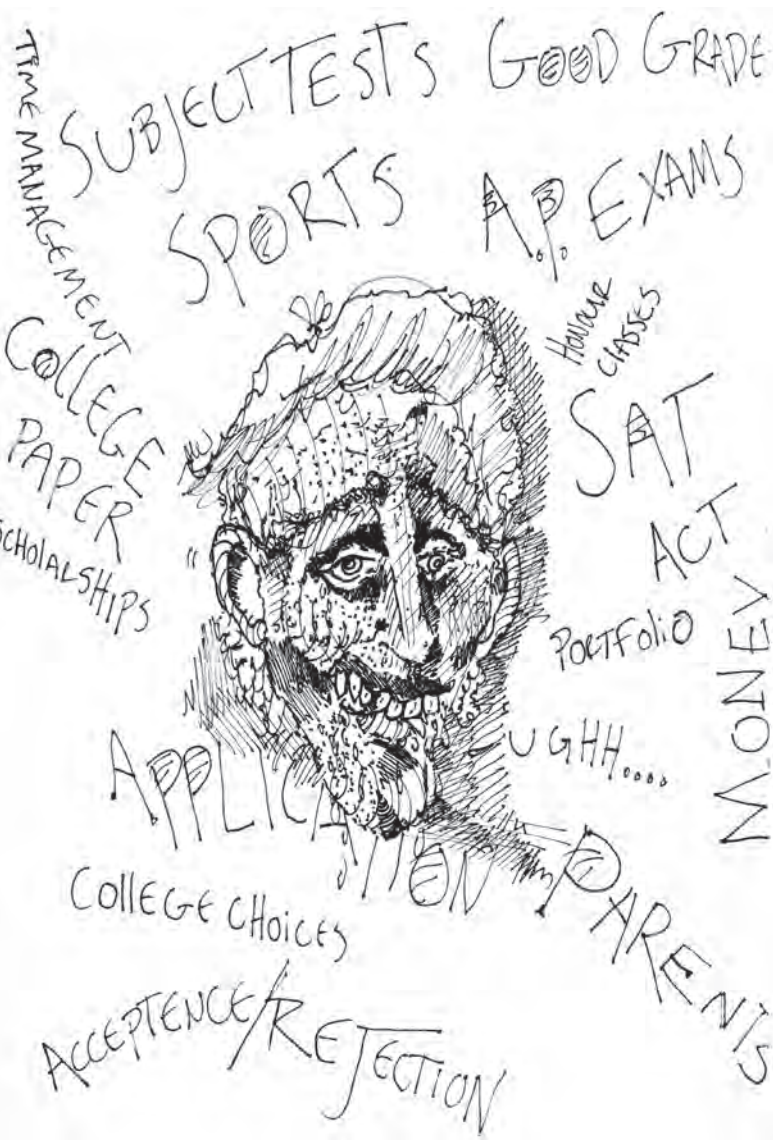 TIME MANAGEMENT
SUBJECT TESTS
GOOD GRADE
SPORTS
A.P. EXAMS
HONOUR
CLASSES
COLLEGE
PAPER
SCHOLALSHIPS
SAT
ACT
PORTFOLIO
MONEY
UGHH....
APPLICATION
PARENTS
COLLEGE CHOICES
ACCEPTENCE/REJECTION